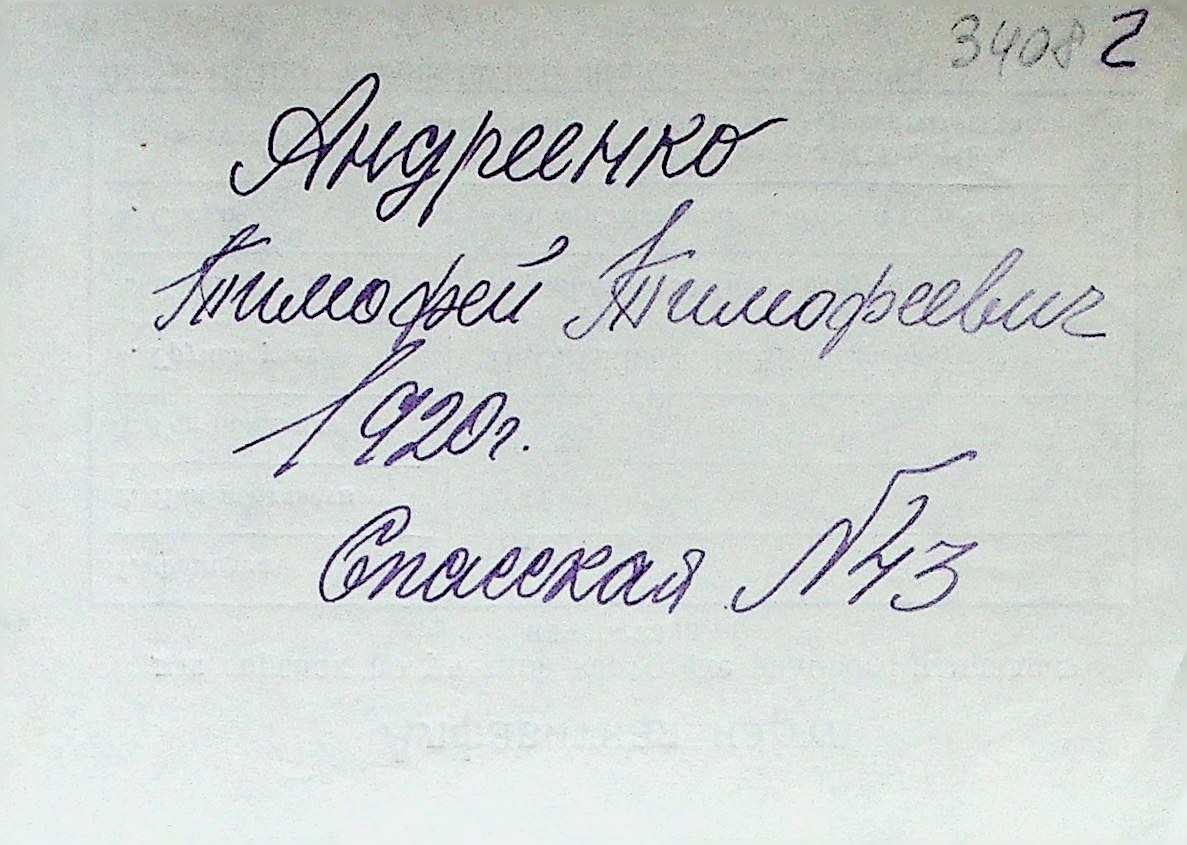 3408 2
Андреенко
Тимофей Тимофеевич
1920г.
Спасская №43